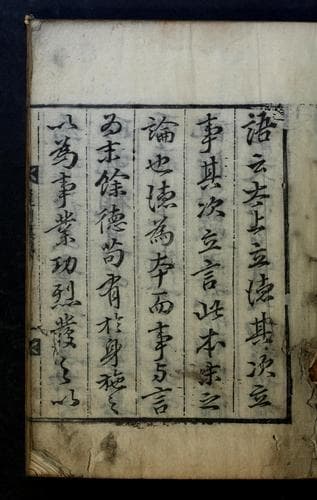 語云太上立德其次立
事其次立言此本末之
論也德為本而事与言
為末餘德苟有於身施之
以為事業功烈發之以